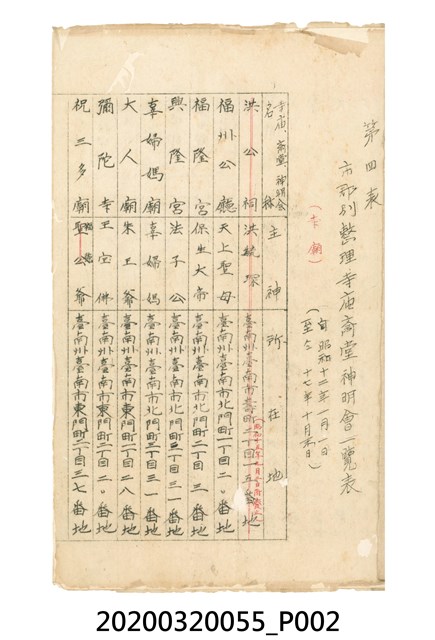 第四表
市郡別整理寺庙斎堂神明會一覧表
(寺廟)
(自昭和十二年一月一日
至仝十七年十月末日)
寺庙、斎堂、神明会名称 主神 所在地
洪公祠 洪統琛 臺南州臺南市壽町二丁目一五番地
福州公廳 天上聖母 臺南州臺南市北門町一丁目二〇番地
福隆宮 保生大帝 臺南州臺南市北門町二丁目三番地
興隆宮 法子公 臺南州臺南市北門町二丁目三一番地
辜婦媽廟 辜婦媽 臺南州臺南市北門町二丁目三一番地
大人廟 朱王爺 臺南州臺南市東門町一丁目二八番地
彌陀寺 王宝琳 臺南州臺南市東門町二丁目二〇番地
祝三多廟 聖公爺 臺南州臺南市東門町二丁目三七番地
20200320055_P002